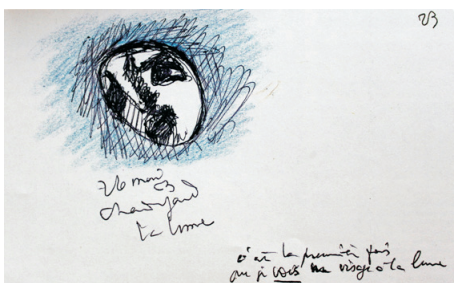 23
26 mai
03
la lune
c'est la première fois
que je vois un visage à la lune